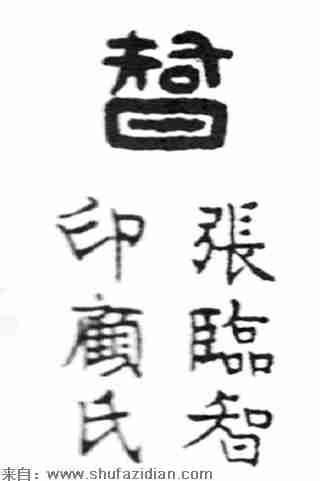 智
張臨智
印顧氏
来自：www.shufazidian.com